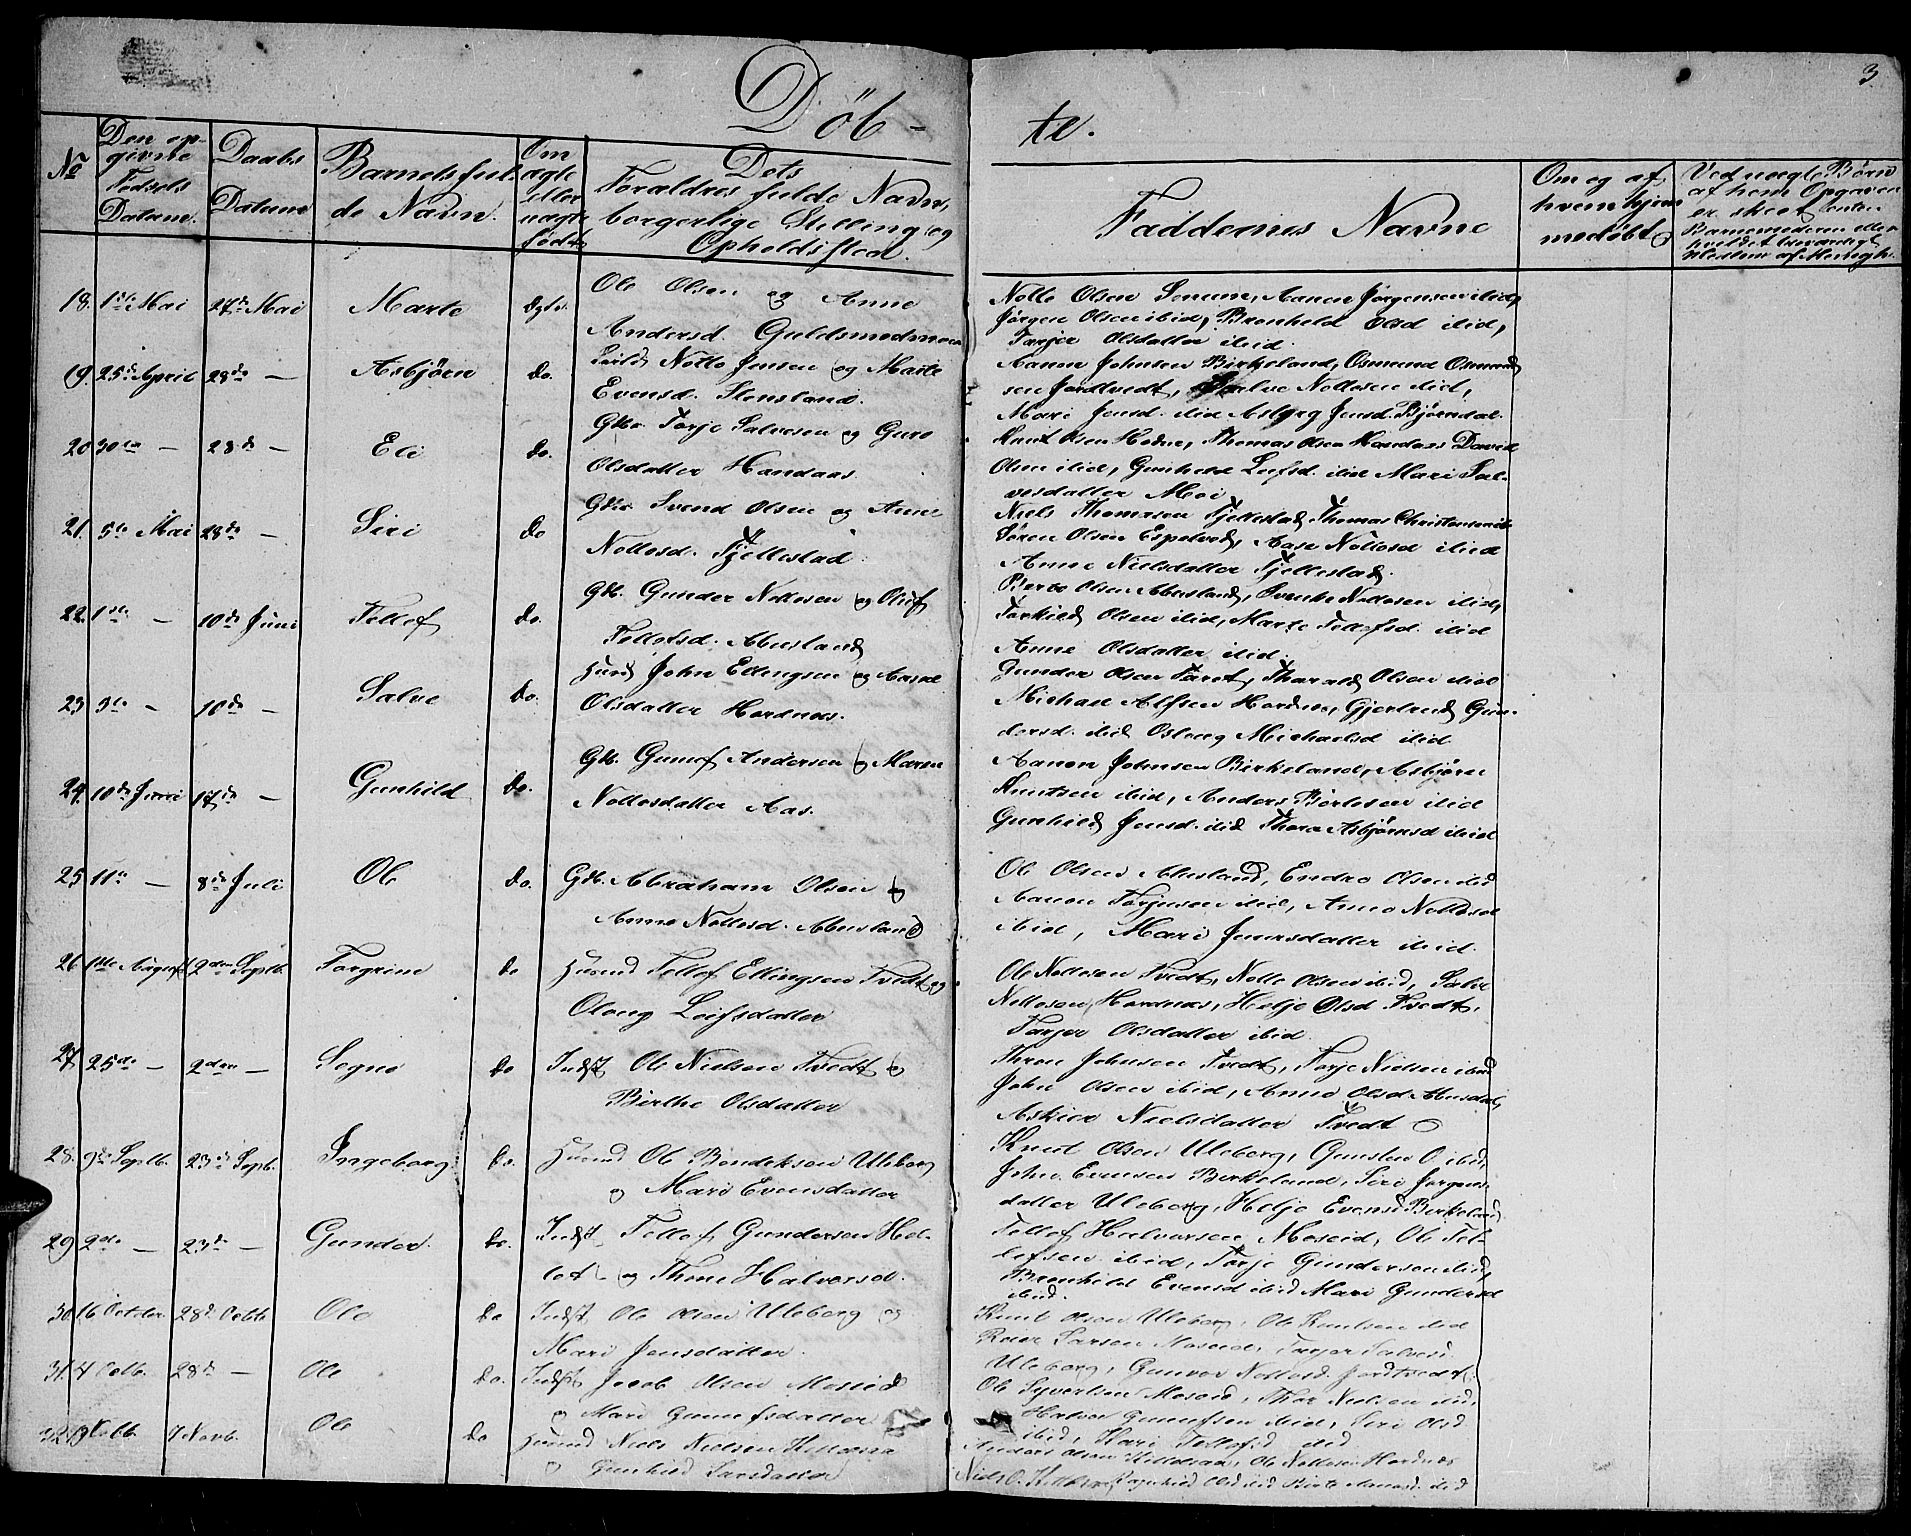 3
Döb- te.
No
Den op-
givne
Födsels
Datum.
Daabs
Datum
Barnets ful-
de Navn.
Om
ægte
eller
uægte
födt
Dets
Forældres fulde Navn,
borgerlige Stilling og
Opholdssted.
Faddernes Navne
Om og af
hvem hjem
medöbt
Ved uægte Börn
af hvem Opgaven
er skeet
18. 1ste Mai 27de Mai Marte Ole Olsen og Anne
Andersd.
Notto Olsen Senum, Aanon Jörgensen ibid,
Jörgen Olsen ibid, Brønhild Olsd ibid,
Tarjer Olsdatter ibid.
19. 25de April 28de — Asbjörn do. Notto Jensen og Marte
Evensd. Stensland.
Aanon Johnsen Birkeland, Osmund Osmund
sen Jordtvedt, Nottosen ibid,
Mari Jensd. ibid Asbjørg Jensd. Bjørndal.
20 30te — 28de — Eli do. Gbr. Torje Salvesen og Guro
Olsdatter Handaas.
Knut Olsen Hodne, Thomas Olsen Handaas David
Olsen ibid, Gunhild Leifsd. ibid Mari Sal-
vesdatter Moi
21. 5te Mai 28de — Siri do Gbr. Svend Olsen og Anne
Nottosd. Fjellestad.
Niels Thomasen Fjellestad Thomas Christensen ib
Sören Olsen Espetvedt, Aase Nottosd ibid
Anne Nielsdatter Fjellestad.
22. 1ste — 10de Juni Tellef do. Gbr. Gunder Nottosen og Oluf
Tellefsd. Abusland
Berte Olsen Abusland, Nottosen ibid,
Torkild Olsen ibid, Marte Tellefsd. ibid
Anne Olsdatter ibid.
23 3te — 10de — Salve do. Husd John Ellingsen og Aasne
Olsdatter Hordnes.
Gunder Olsen Tvet, Tharald Olsen ibid
Michael Alfsen Hordnes, Gjerland Gun-
dersd. ibid Osleug Michaelsd ibid
24. 10de Juni 17de — Gunhild do. Gbr. Gunuf Andersen og Maren
Nottosdatter Aas.
Aanon Johnsen Birkeland, Asbjörn
Knutsen ibid, Anders Börlesen ibid
Gunhild Jensd. ibid Thora Asbjörnsd ibid
25 11te — 8de Juli Ole do. Gbr. Abraham Olsen og
Anne Nottosd. Abusland
Ole Olsen Abusland, Endre Olsen ibid
Aanon Torjusen ibid, Anne Nottosd
ibid, Mari ibid.
26 1ste August 2den Septb. Torgrine do Husmd Tellef Ellingsen Tvedt og
Olaug Leifsdatter
Ole Nottosen Tvedt, Notto Olsen ibid, Salve
Nottosen Hordnes, Helje Olsd Tvedt,
Tarjer Olsdatter ibid.
27 25de — 2den — Segne do Indst Ole Nielsen Tvedt og
Birthe Olsdatter
Thron Johnsen Tvedt, Torje Nielsen ibid
John Olsen ibid, Anne Olsd Abusdal,
Askier Nielsdatter Tvedt
28. 9de Septb. 23de Septb. Ingeborg do. Husmd Ole Bendiksen Uleberg
og Mari Evensdatter
Knud Olsen Uleberg, Gunsten O ibid,
John Evensen Birkeland, Siri Jörgens-
datter Uleberg, Helje Evensd Birkeland
29 2de — 23de — Gunder. do. Indst Tellef Gundersen Hel-
let og Thone Halvorsd.
Tellef Halvorsen Moseid, Ole Tel-
lefsen ibid, Torje Gundersen ibid,
Brønhild Evensd ibid Mari Gundersd
ibid.
30. 16 October 28de Octb. Ole do Indst Ole Olsen Uleberg og
Mari Jensdatter.
Knut Olsen Uleberg, Ole Knutsen ibid
Reier Larsen Moseid, Tarjer Salvesd.
Uleberg, Gunvor Nottosd. Jordtvedt.
31. 4 Octb. 28de — Ole do. Indst Jacob Olsen Moseid
og Mari Gunufsdatter
Ole Syvertsen Moseid, Thor Nielsen ibid,
Halvor Gunufsen ibid, Siri Olsd
ibid, Kari Tellefsd ibid
32 Octb. 4 Novb. Ole do Husmd Niels Nielsen
og Gunhild Larsdatter
Anders Olsen Ole Nottosen Hordnes
Niels O. Olsd ibid Birte ibid